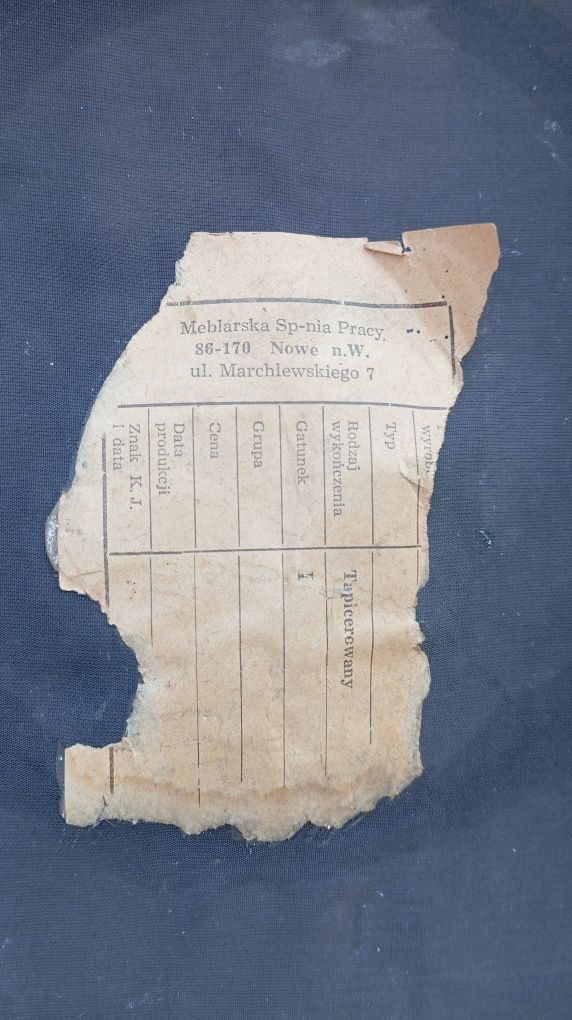 Meblarska Sp-nia Pracy
86-170 Nowe n.W.
ul. Marchlewskiego 7
Typ
Rodzaj
wykończenia
Tapicerowany
Gatunek
I
Grupa
Cena
Data
produkcji
Znak K. J.
i data